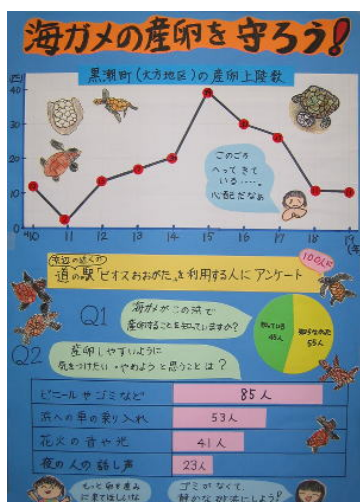 海ガメの産卵を守ろう!
黒潮町(大方地区)の産卵上陸数
40
30
20
10
0
'10 11 12 13 14 15 16 17 18 19
このごろ
へってきて
いる……。
心配だなぁ
100人に
道の駅「ビオスおおがた」を利用する人にアンケート
Q1
海ガメがこの浜で
産卵することを知っていますか?
知っている
45人
知らなかった
55人
Q2
産卵しやすいように
気をつけたい・やめようと思うことは?
ビニールやゴミなど 85人
浜への車の乗り入れ 53人
花火の音や光 41人
夜の人の話し声 23人
もっと卵を産み
に来てほしいな
ゴミがなくて、
静かな砂浜にしよう!